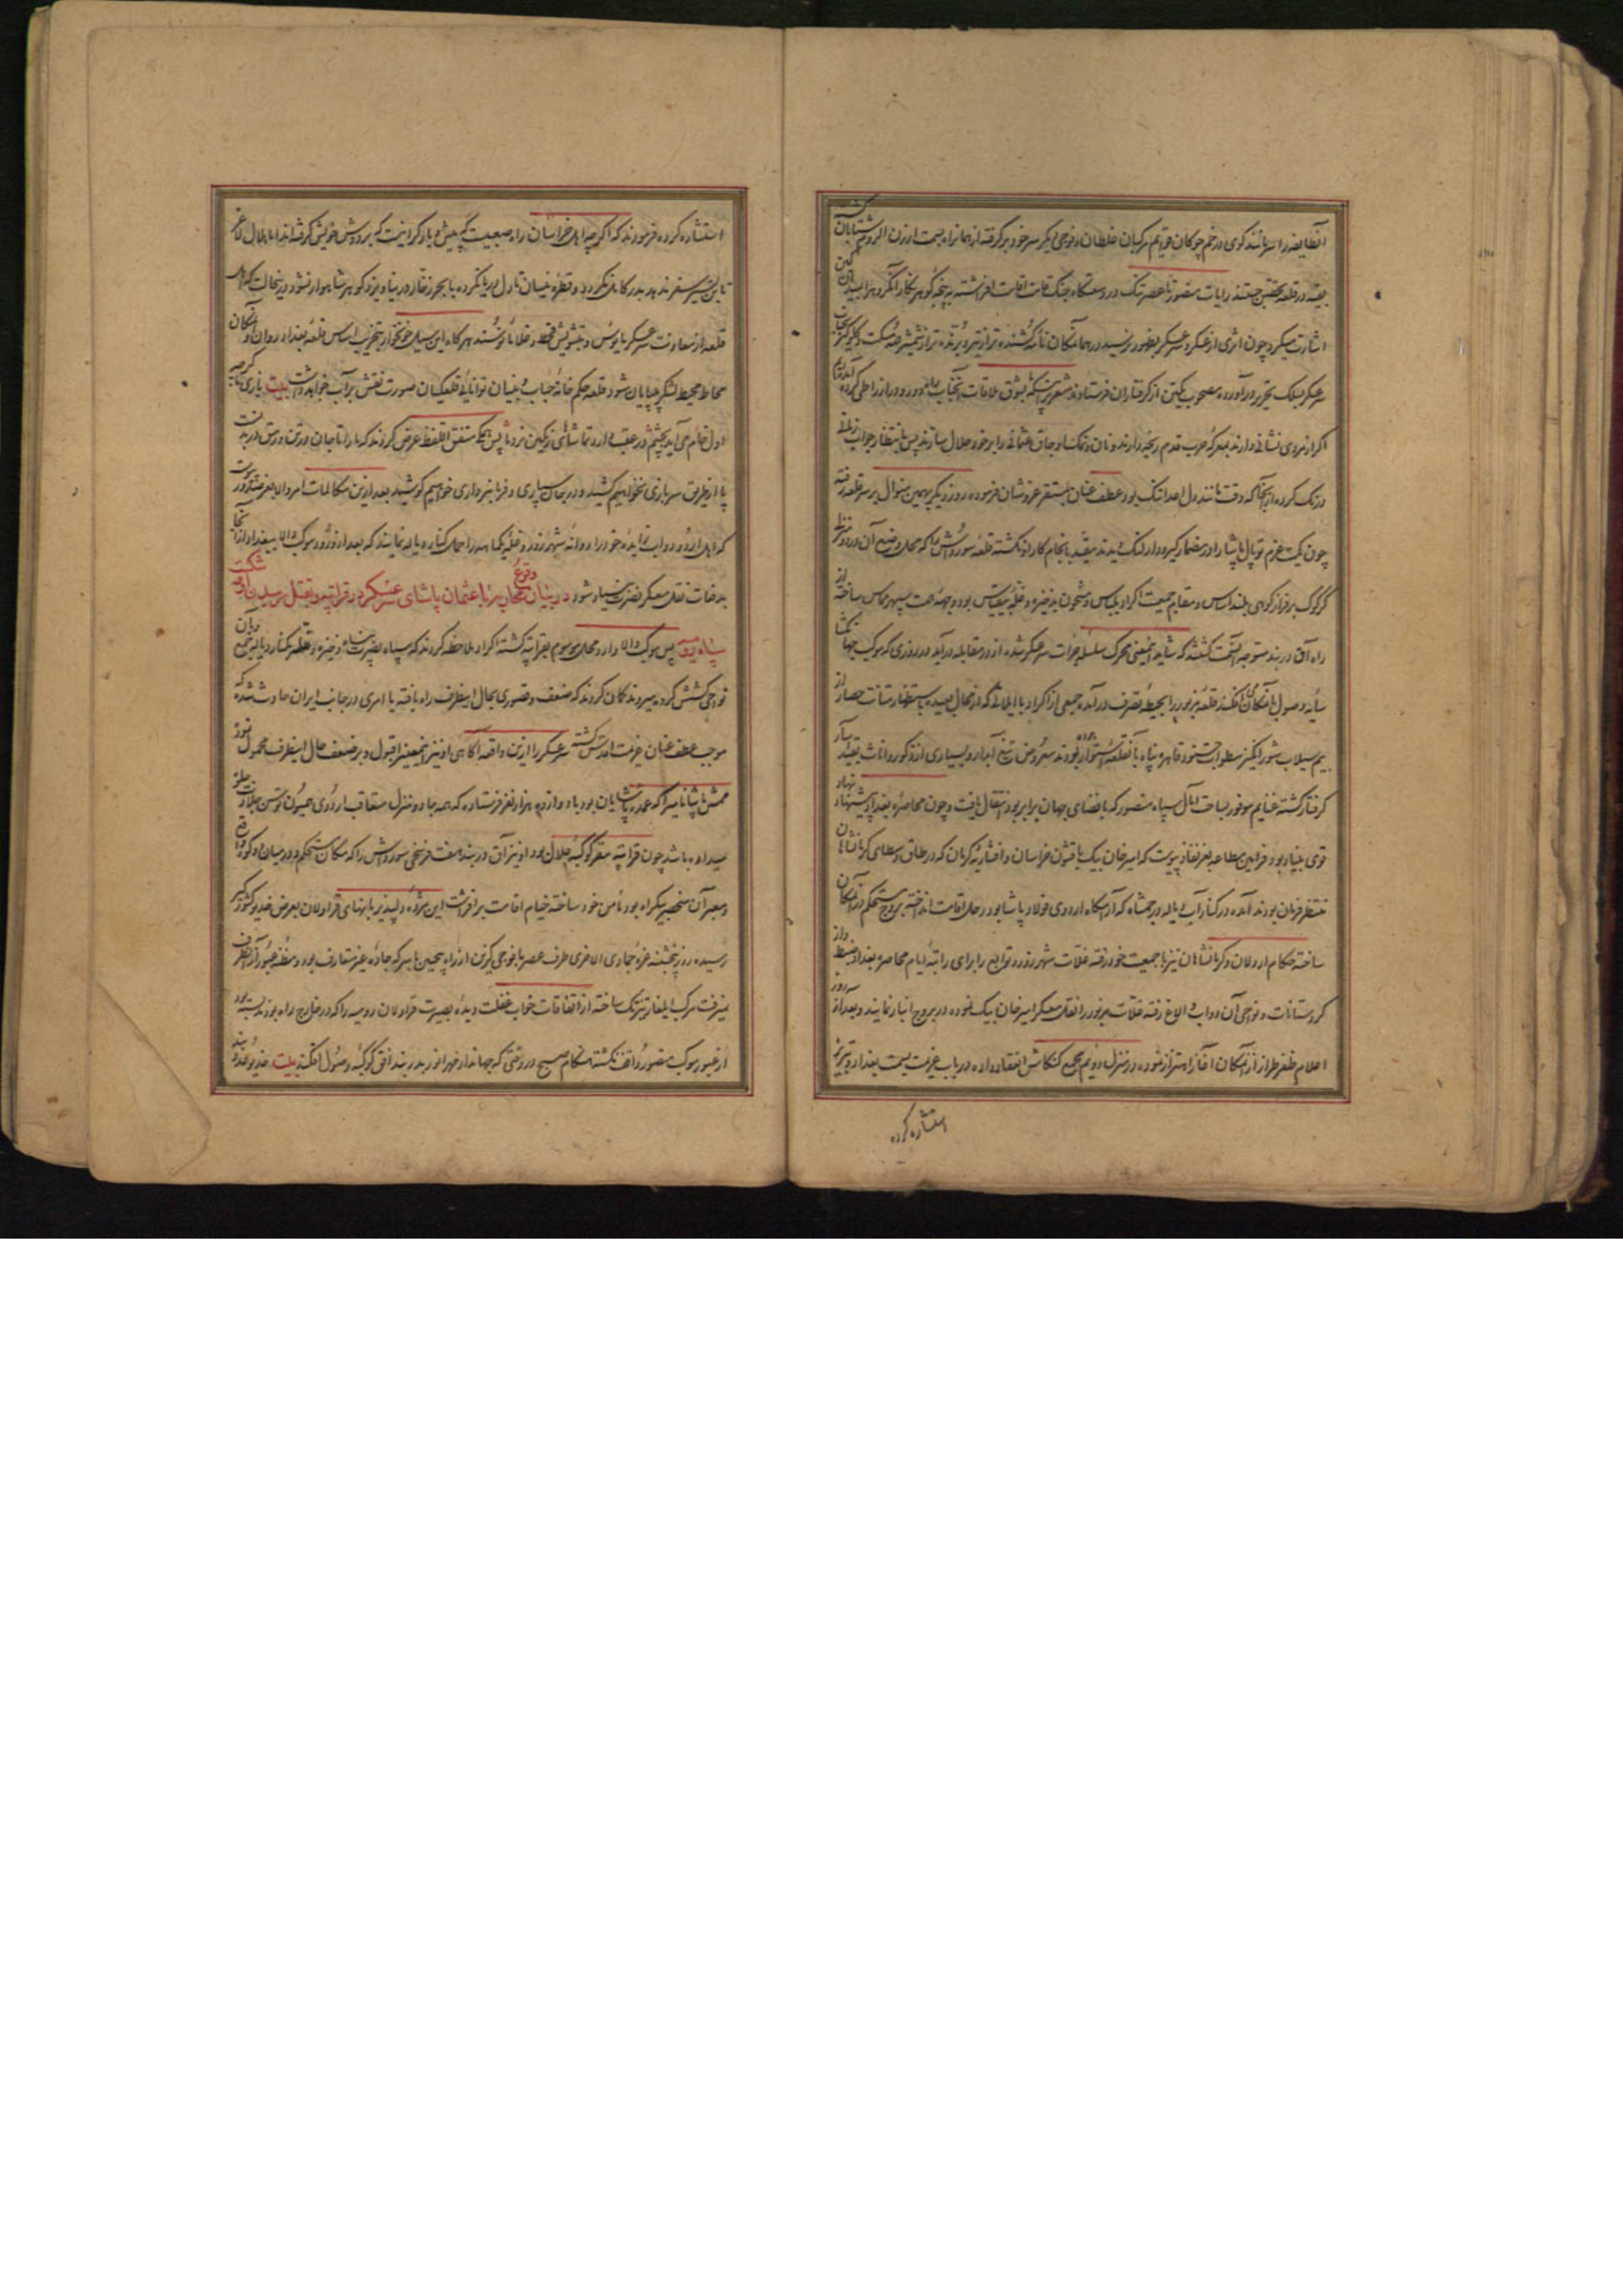 آنطایفه را سر مانند کوی در خم چوکان قوایم مرکبان غلطان و فوجی دیگر سر خود بر گرفته از همانراه بسمت ارزن الروم شتابان گشته
بقیه در قلعه تحصن جستند رایات منصور تا عصر تنگ در دستگاه جنگ قامت اقامت افراشته
اشارت میکرد چون اثری از عسکر و سرعسکر بظهور نرسید در همانمکان نامه کشنده تر از تیر و برنده تر از شمشیر
سرعسکر بسلک تحریر در آورده مصحوب یکتن از گرفتاران فرستادند مشعر بر اینکه بشوق ملاقات آنجناب راه دور و دراز را طی کرده آمده‌ایم
اگر از مردی نشانی دارند بمعرکه حرب قدم رنجه دارند و نان و نمک اوجاق عثمانی را بر خود حلال سازند پس بانتظار جواب زمانی
درنگ کرده از آنجا که وقت مانند دل اعدا تنگ بود عطف عنان بمستقر عز و شان فرموده روز دیگر بهمین منوال بر سر قلعه رفته
چون یک عزم توپال پاشا را در مضمار گیر و دار لنگ دیدند مقید بانجام کار او نگشته قلعه سورداش را که محل وضیع آن در دو منزلی
کرکوک بر فراز کوهی بلند اساس و مقام جمعیت اکراد بلباس و مشحون بذخیره و غله بیقیاس بود وجهه همت سپهر مماس ساخته از
راه آق دربند متوجه آنسمت گشتند که شاید اینمعنی محرک سلسله جرات سرعسکر شده از در مقابله درآید در روزی که موکب جهانگشا
سایه وصول بآنمکان افکند قلعه مزبور را بحیطه تصرف درآمده جمعی از اکراد با ایلاتی که از محال بعیده باستظهار متانت حصار از
بیم سیلاب شورانگیز سطوات جنود قاهره پناه بآنقلعه استوار برده بودند معروض تیغ آبدار و بسیاری از ذکور و اناث بقید اسار
گرفتار گشته غنایم موفور بساحت آمال سپاه منصور که با فضای جهان برابر بود انتقال یافت و چون محاصره بغداد پیشنهاد نهاد
قوی بنیاد بود فرامین مطاعه بعز نفاذ پیوست که امیر خان بیک با قشون خراسان و افشاریه کرمان که در طاق وسطای کرمانشاهان
منتظر فرمان بودند آمده در کنار آب دیاله در چمشاه که آرامگاه اردوی فولاد پاشا بود رحل اقامت انداخته بروج مستحکم در آنمکان
ساخته حکام اردلان و کرمانشاهان نیز با جمعیت خود رفته غلات شهرزور و توابع را برای راتبه ایام محاصره بغداد ضبط و از
کردستانات و نواحی آن دواب و الاغ گرفته غلات مزبور را نقل معسکر امیر خان بیک نموده در بروج انبار نمایند و بعد از سه روز
اعلام ظفر طراز از آنمکان آغاز اهتزاز نموده در منزل دویم مجمع کنکاش انعقاد داده در باب عزیمت بسمت بغداد و تبریز
استشاره کرده
استشاره کرده فرمودند که اگر چه اهل خراسان را راه صعبیست که پیش و بار گرانیست که بر دوش خویش گرفته‌اند اما هلال لاغر
تا بر رنج سفر تن ندهد بدر کامل نگردد و قطره نیسان تا دل بدریا نکرده با بحر زخار در نیاویزد گوهر شاهوار نشود در اینحالت که اهل
قلعه از معاونت سرعسکر مایوس و بتشویش قحط و غلا مانوسند هرگاه این سیل خونخوار بتخریب اساس قلعه بغداد روان و آنمکان
محاط محیط لشکر بیپایان شود قلعه حکم خانه حباب و بنیان توانایی قلعگیان صورت نقش بر آب خواهد داشت بیت بازی ما گرچه
اول خام می‌آید بچشم در عقب دارد تماشاهای رنگین نرد ما پس همگی متفق اللفظ عرض کردند که ما را تا جان در تن و رمق در بدن است
پا از طریق سربازی نخواهیم کشید و در جان سپاری و فرمانبرداری خواهیم کوشید بعد از این مکالمات امر والا بعز صدور پیوست
که اهل اردو دواب زایده خود را روانه شهرزور و غله کما هو را حمل کنار دیاله نمایند که بعد از ورود موکب والا ببغداد از آنجا
بدفعات نقل معسکر نصرت بنیاد شود در بیان وقوع محاربه با عثمان پاشای سرعسکر در قراتپه و بقتل رسیدن او و شکست
سپاه روم پس موکب والا وارد محل موسوم بقراتپه گشته اکراد ملاحظه کردند که سپاه نصرت پناه ذخیره و غله بکنار دیاله جمع و بآن
نواحی کشش کرده میبرند گمان کردند که ضعف و قصوری بحال اینطرف راه یافته یا امری در جانب ایران حادث شده که
موجب عطف عنان عزیمت اقدس گشته سرعسکر را از این واقعه آگاهی او نیز اینمعنی را قبول و بر ضعف حال اینطرف محمول نموده
ممش پاشا نامیرا که عمده پاشایان بود با دوازده هزار نفر فرستاده که همه جا دو منزل متعاقب اردوی همیون توسن جلادت جلوه
میداده باشد چون قراتپه مقر کوکبه جلال بود او نیز آق دربند هفت فرسخی سورداش را که مکان مستحکم و در میان دو کوه واقع
و معبر آن منحصر بیکراه بود مأمن خود ساخته خیام اقامت برافراشت این مژده دلپذیر بانهای قراولان بعرض خدیو کشورگیر
رسیده روز پنجشنبه غره جمادی الاخری طرف عصر با فوجی گزین از راه پنجین با سر که جاده غیر متعارف بود و مظنه عبور از آنطرف
نمیرفت مرکب ایلغار تیزتک ساخته از اتفاقات خواب غفلت دیده بصیرت قراولان رومیه را که در خارج راه بودند بسته بود
از عبور موکب منصور واقف نگشته هنگام صبح در وقتی که جهاندار مهر انور بدربند افق کوکبه وصول افکند بیت خدیو عدو بند